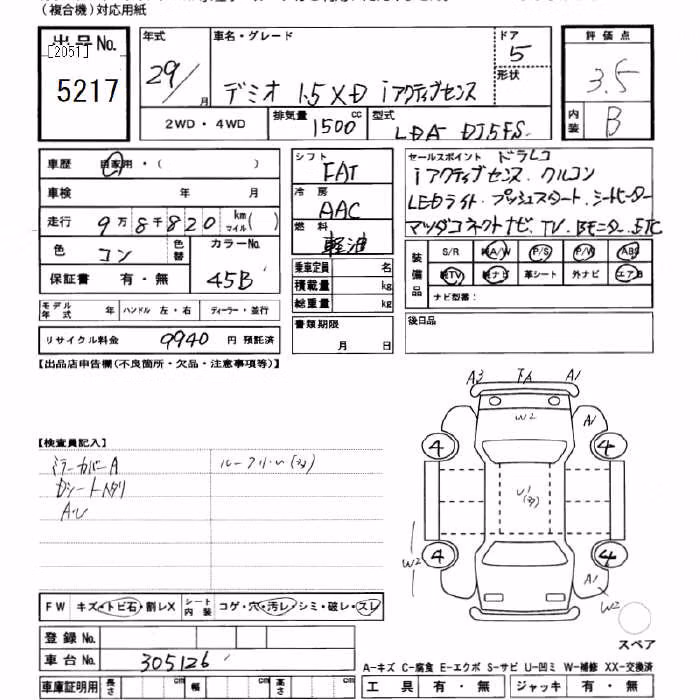 (複合機)対応用紙
出品No.
[2051]
5217
年式 車名・グレード ドア
29/ 月 デミオ 1.5 XD iアクティブセンス 5
形状
2WD・4WD 排気量 1500 cc 型式 LDA DJ5FS
評価点
3.5
内装 B
車歴 自家用・( )
車検 年 月
走行 9万8千820 km マイル( )
色 コン 色替 カラーNo.
保証書 有・無 45B
モデル年式 年 ハンドル 左・右 ディーラー・並行
リサイクル料金 9940 円 預託済
シフト FAT
冷房 AAC
燃料 軽油
乗車定員 名
積載量 kg
総重量 kg
書類期限
月 日
セールスポイント ドラレコ
iアクティブセンス. クルコン
LEDライト. プッシュスタート. シートヒーター
マツダコネクトナビ. TV. Bモニター. ETC
装備品 S/R 純A/W P/S P/W ABS
純TV 純ナビ 革シート 外ナビ エアB
ナビ型番:
後日品
【出品店申告欄(不良箇所・欠品・注意事項等)】
【検査員記入】
ミラーカバーA ルーフクリハ(多)
Dシートヘタリ
A.U
A3 A1
W2 A1
4 4
U1(多)
4 4
W2
A1 W2
スペア
FW キズ・トビ石・割レX シート内装 コゲ・穴・汚レ・シミ・破レ・スレ
登録No.
車台No. 305126
車庫証明用 長さ cm 幅 cm 高さ cm
A-キズ C-腐食 E-エクボ S-サビ U-凹ミ W-補修 XX-交換済
工具 有・無 ジャッキ 有・無